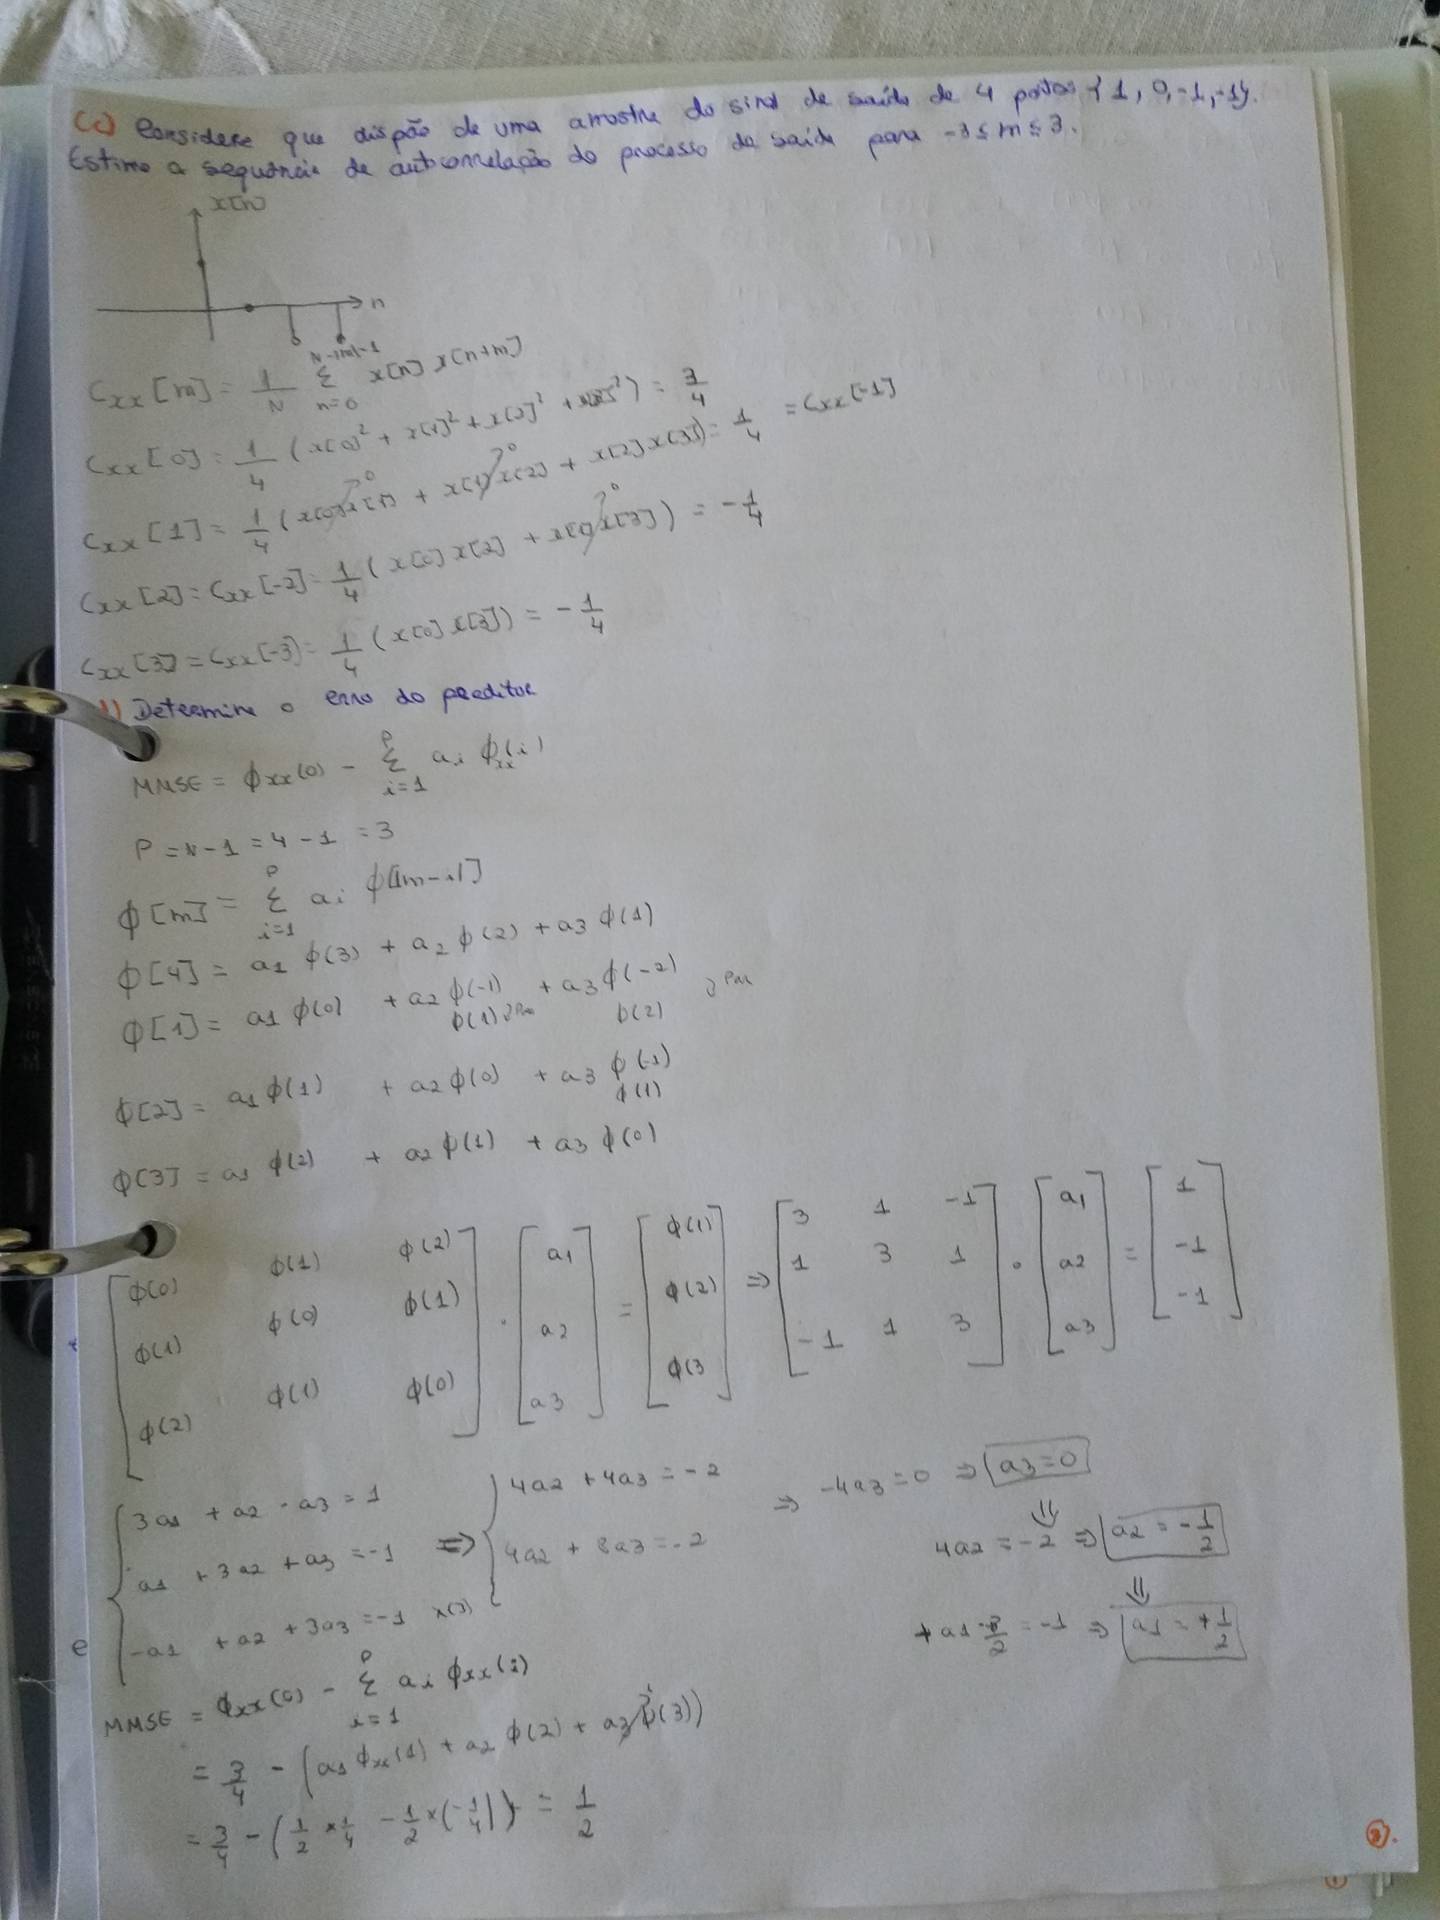 (c) Considere que dispõe de uma amostra do sinal de saída de 4 pontos {1, 0, -1, -1}.
Estime a sequência de autocorrelação do processo de saída para -3 ≤ m ≤ 3.
x[n]
n
Cxx[m] = 1/N Σ_{n=0}^{N-|m|-1} x[n] x[n+m]
Cxx[0] = 1/4 (x[0]² + x[1]² + x[2]² + x[3]²) = 3/4
Cxx[1] = 1/4 (x[0]x[1] →0 + x[1]x[2] →0 + x[2]x[3]) = 1/4 = Cxx[-1]
Cxx[2] = Cxx[-2] = 1/4 (x[0]x[2] + x[1]x[3] →0) = -1/4
Cxx[3] = Cxx[-3] = 1/4 (x[0]x[3]) = -1/4
d) Determine o erro do preditor
MMSE = ϕxx(0) - Σ_{i=1}^{P} ai ϕxx(i)
P = N-1 = 4-1 = 3
ϕ[m] = Σ_{i=1}^{P} ai ϕ[|m-i|]
ϕ[4] = a1 ϕ(3) + a2 ϕ(2) + a3 ϕ(1)
ϕ[1] = a1 ϕ(0) + a2 ϕ(-1) + a3 ϕ(-2) } Par
ϕ(1) } Par ϕ(2)
ϕ[2] = a1 ϕ(1) + a2 ϕ(0) + a3 ϕ(-1)
ϕ(1)
ϕ[3] = a1 ϕ(2) + a2 ϕ(1) + a3 ϕ(0)
[ϕ(0) ϕ(1) ϕ(2)] [a1] [ϕ(1)] [3 1 -1] [a1] [1]
[ϕ(1) ϕ(0) ϕ(1)] · [a2] = [ϕ(2)] ⇒ [1 3 1] · [a2] = [-1]
[ϕ(2) ϕ(1) ϕ(0)] [a3] [ϕ(3] [-1 1 3] [a3] [-1]
{ 3a1 + a2 - a3 = 1 { 4a2 + 4a3 = -2 ⇒ -4a3 = 0 ⇒ a3 = 0
a1 + 3a2 + a3 = -1 ⇒ 4a2 + 8a3 = -2 4a2 = -2 ⇒ a2 = -1/2
-a1 + a2 + 3a3 = -1 x(3) + a1 - 3/2 = -1 ⇒ a1 = +1/2
MMSE = ϕxx(0) - Σ_{i=1}^{P} ai ϕxx(i)
= 3/4 - (a1 ϕxx(1) + a2 ϕ(2) + a3 ϕ(3))
= 3/4 - (1/2 × 1/4 - 1/2 × (-1/4)) = 1/2
e
3).